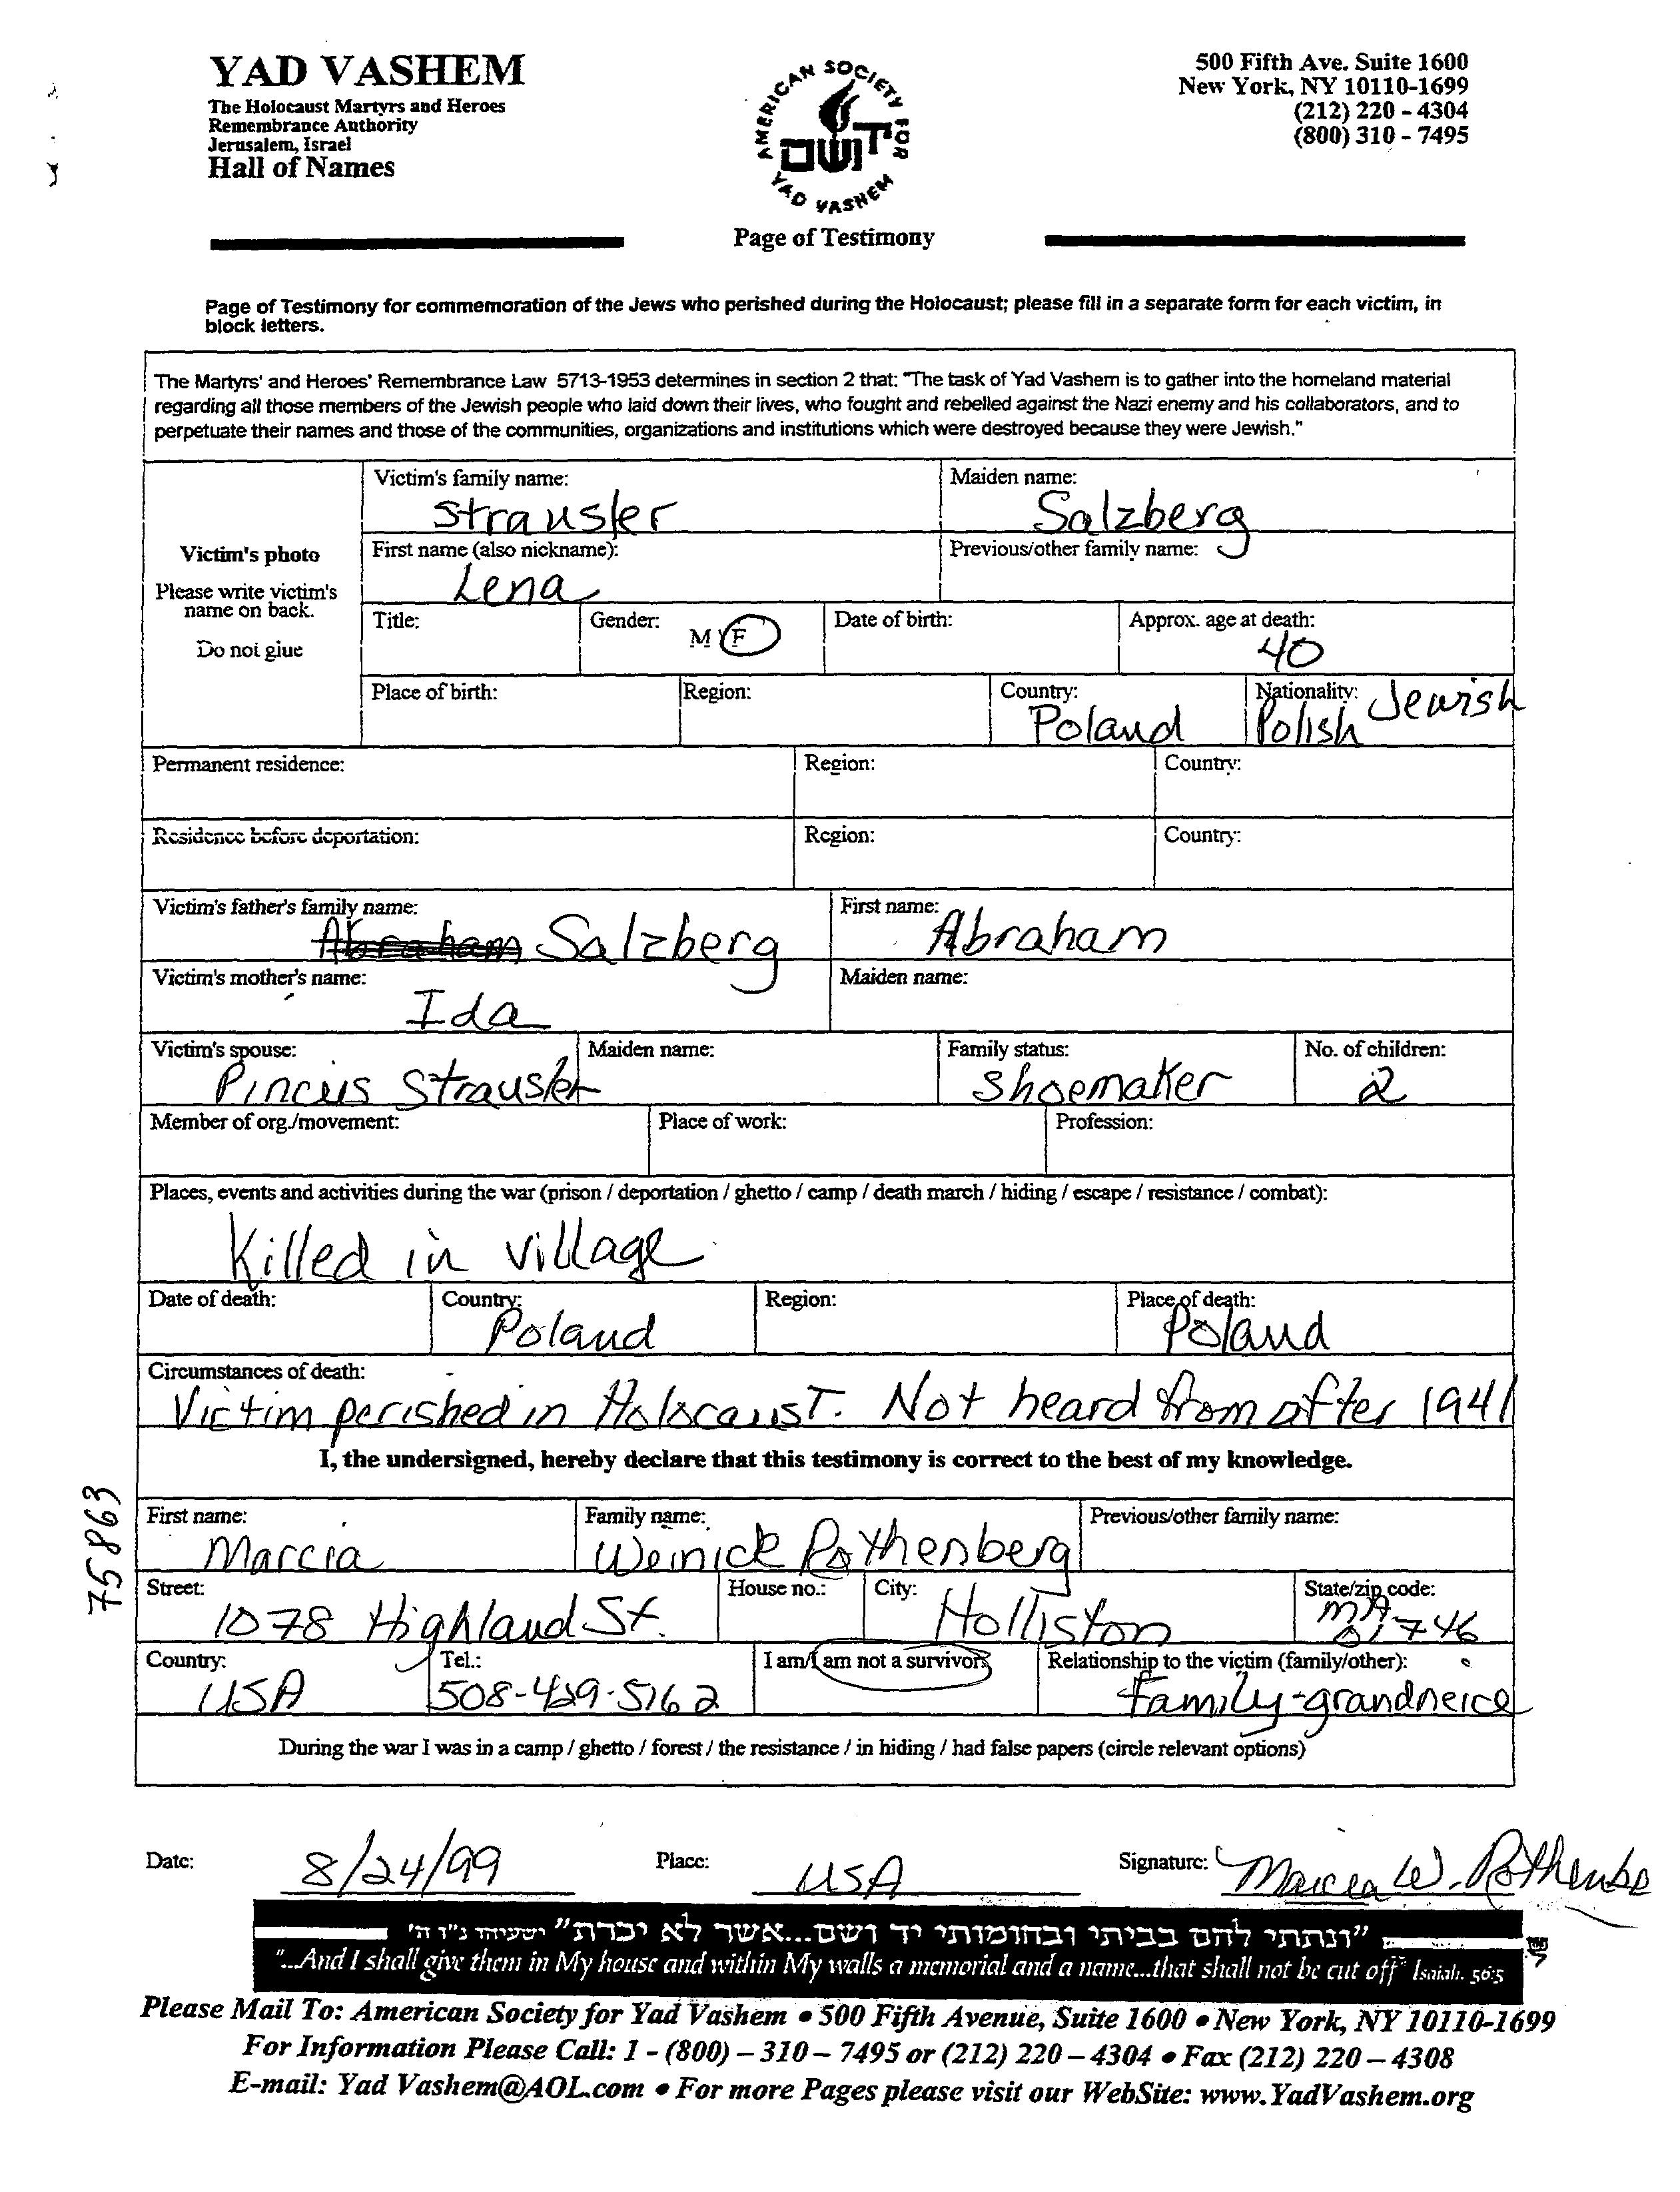 YAD VASHEM
The Holocaust Martyrs and Heroes
Remembrance Authority
Jerusalem, Israel
Hall of Names
AMERICAN SOCIETY FOR
YAD VASHEM
יד ושם
500 Fifth Ave. Suite 1600
New York, NY 10110-1699
(212) 220 - 4304
(800) 310 - 7495
Page of Testimony
Page of Testimony for commemoration of the Jews who perished during the Holocaust; please fill in a separate form for each victim, in
block letters.
The Martyrs' and Heroes' Remembrance Law 5713-1953 determines in section 2 that: "The task of Yad Vashem is to gather into the homeland material
regarding all those members of the Jewish people who laid down their lives, who fought and rebelled against the Nazi enemy and his collaborators, and to
perpetuate their names and those of the communities, organizations and institutions which were destroyed because they were Jewish."
Victim's photo
Please write victim's
name on back.
Do not glue
Victim's family name: Maiden name:
Strausler Salzberg
First name (also nickname): Previous/other family name:
Lena
Title: Gender: M F Date of birth: Approx. age at death:
40
Place of birth: Region: Country: Nationality: Jewish
Poland Polish
Permanent residence: Region: Country:
Residence before deportation: Region: Country:
Victim's father's family name: First name:
Abraham Salzberg Abraham
Victim's mother's name: Maiden name:
Ida
Victim's spouse: Maiden name: Family status: No. of children:
Pincus Strausler Shoemaker 2
Member of org./movement: Place of work: Profession:
Places, events and activities during the war (prison / deportation / ghetto / camp / death march / hiding / escape / resistance / combat):
Killed in village
Date of death: Country: Region: Place of death:
Poland Poland
Circumstances of death:
Victim perished in Holocaust. Not heard from after 1941
I, the undersigned, hereby declare that this testimony is correct to the best of my knowledge.
75863
First name: Family name: Previous/other family name:
Marcia Weinick Rothenberg
Street: House no.: City: State/zip code:
1078 Highland St. Holliston MA
01746
Country: Tel.: I am/I am not a survivor Relationship to the victim (family/other):
USA 508-429-5162 family-grandneice
During the war I was in a camp / ghetto / forest / the resistance / in hiding / had false papers (circle relevant options)
Date: 8/24/99 Place: USA Signature: Marcia W. Rothenbe
"ונתתי להם בביתי ובחומותי יד ושם...אשר לא יכרת" ישעיהו נ"ו ה'
"...And I shall give them in My house and within My walls a memorial and a name...that shall not be cut off" Isaiah. 56:5
Please Mail To: American Society for Yad Vashem • 500 Fifth Avenue, Suite 1600 • New York, NY 10110-1699
For Information Please Call: 1 - (800) – 310 – 7495 or (212) 220 – 4304 • Fax (212) 220 – 4308
E-mail: Yad Vashem@AOL.com • For more Pages please visit our WebSite: www.YadVashem.org